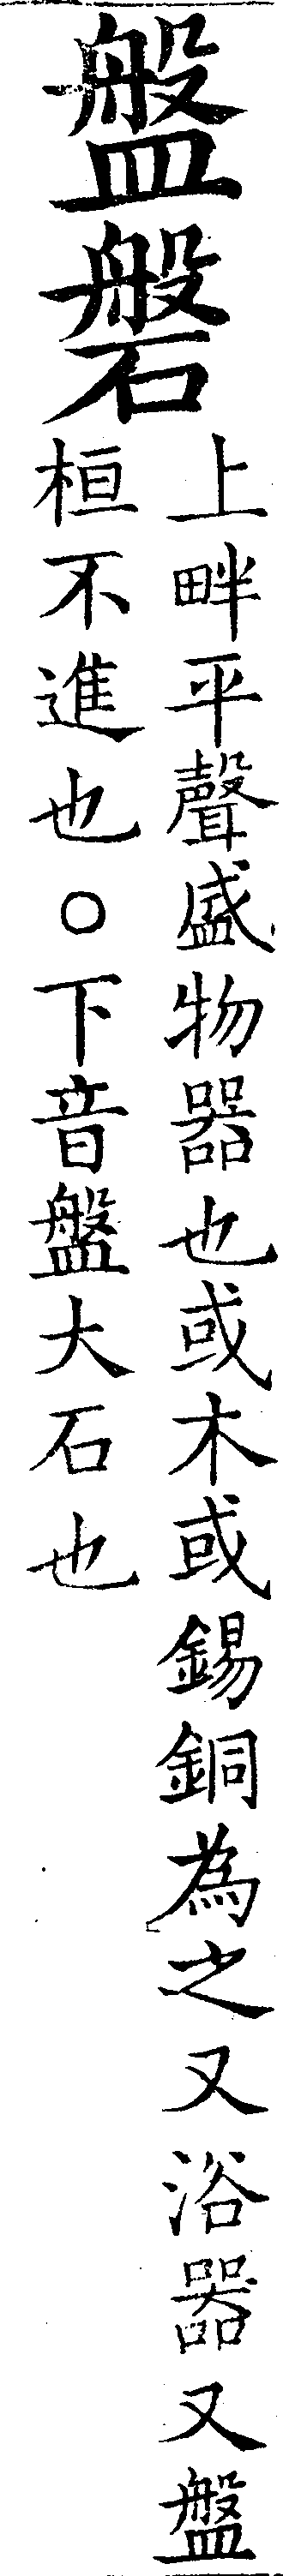 盤磐
上畔平聲盛物器也或木或錫銅為之又浴器又盤
桓不進也○下音盤大石也